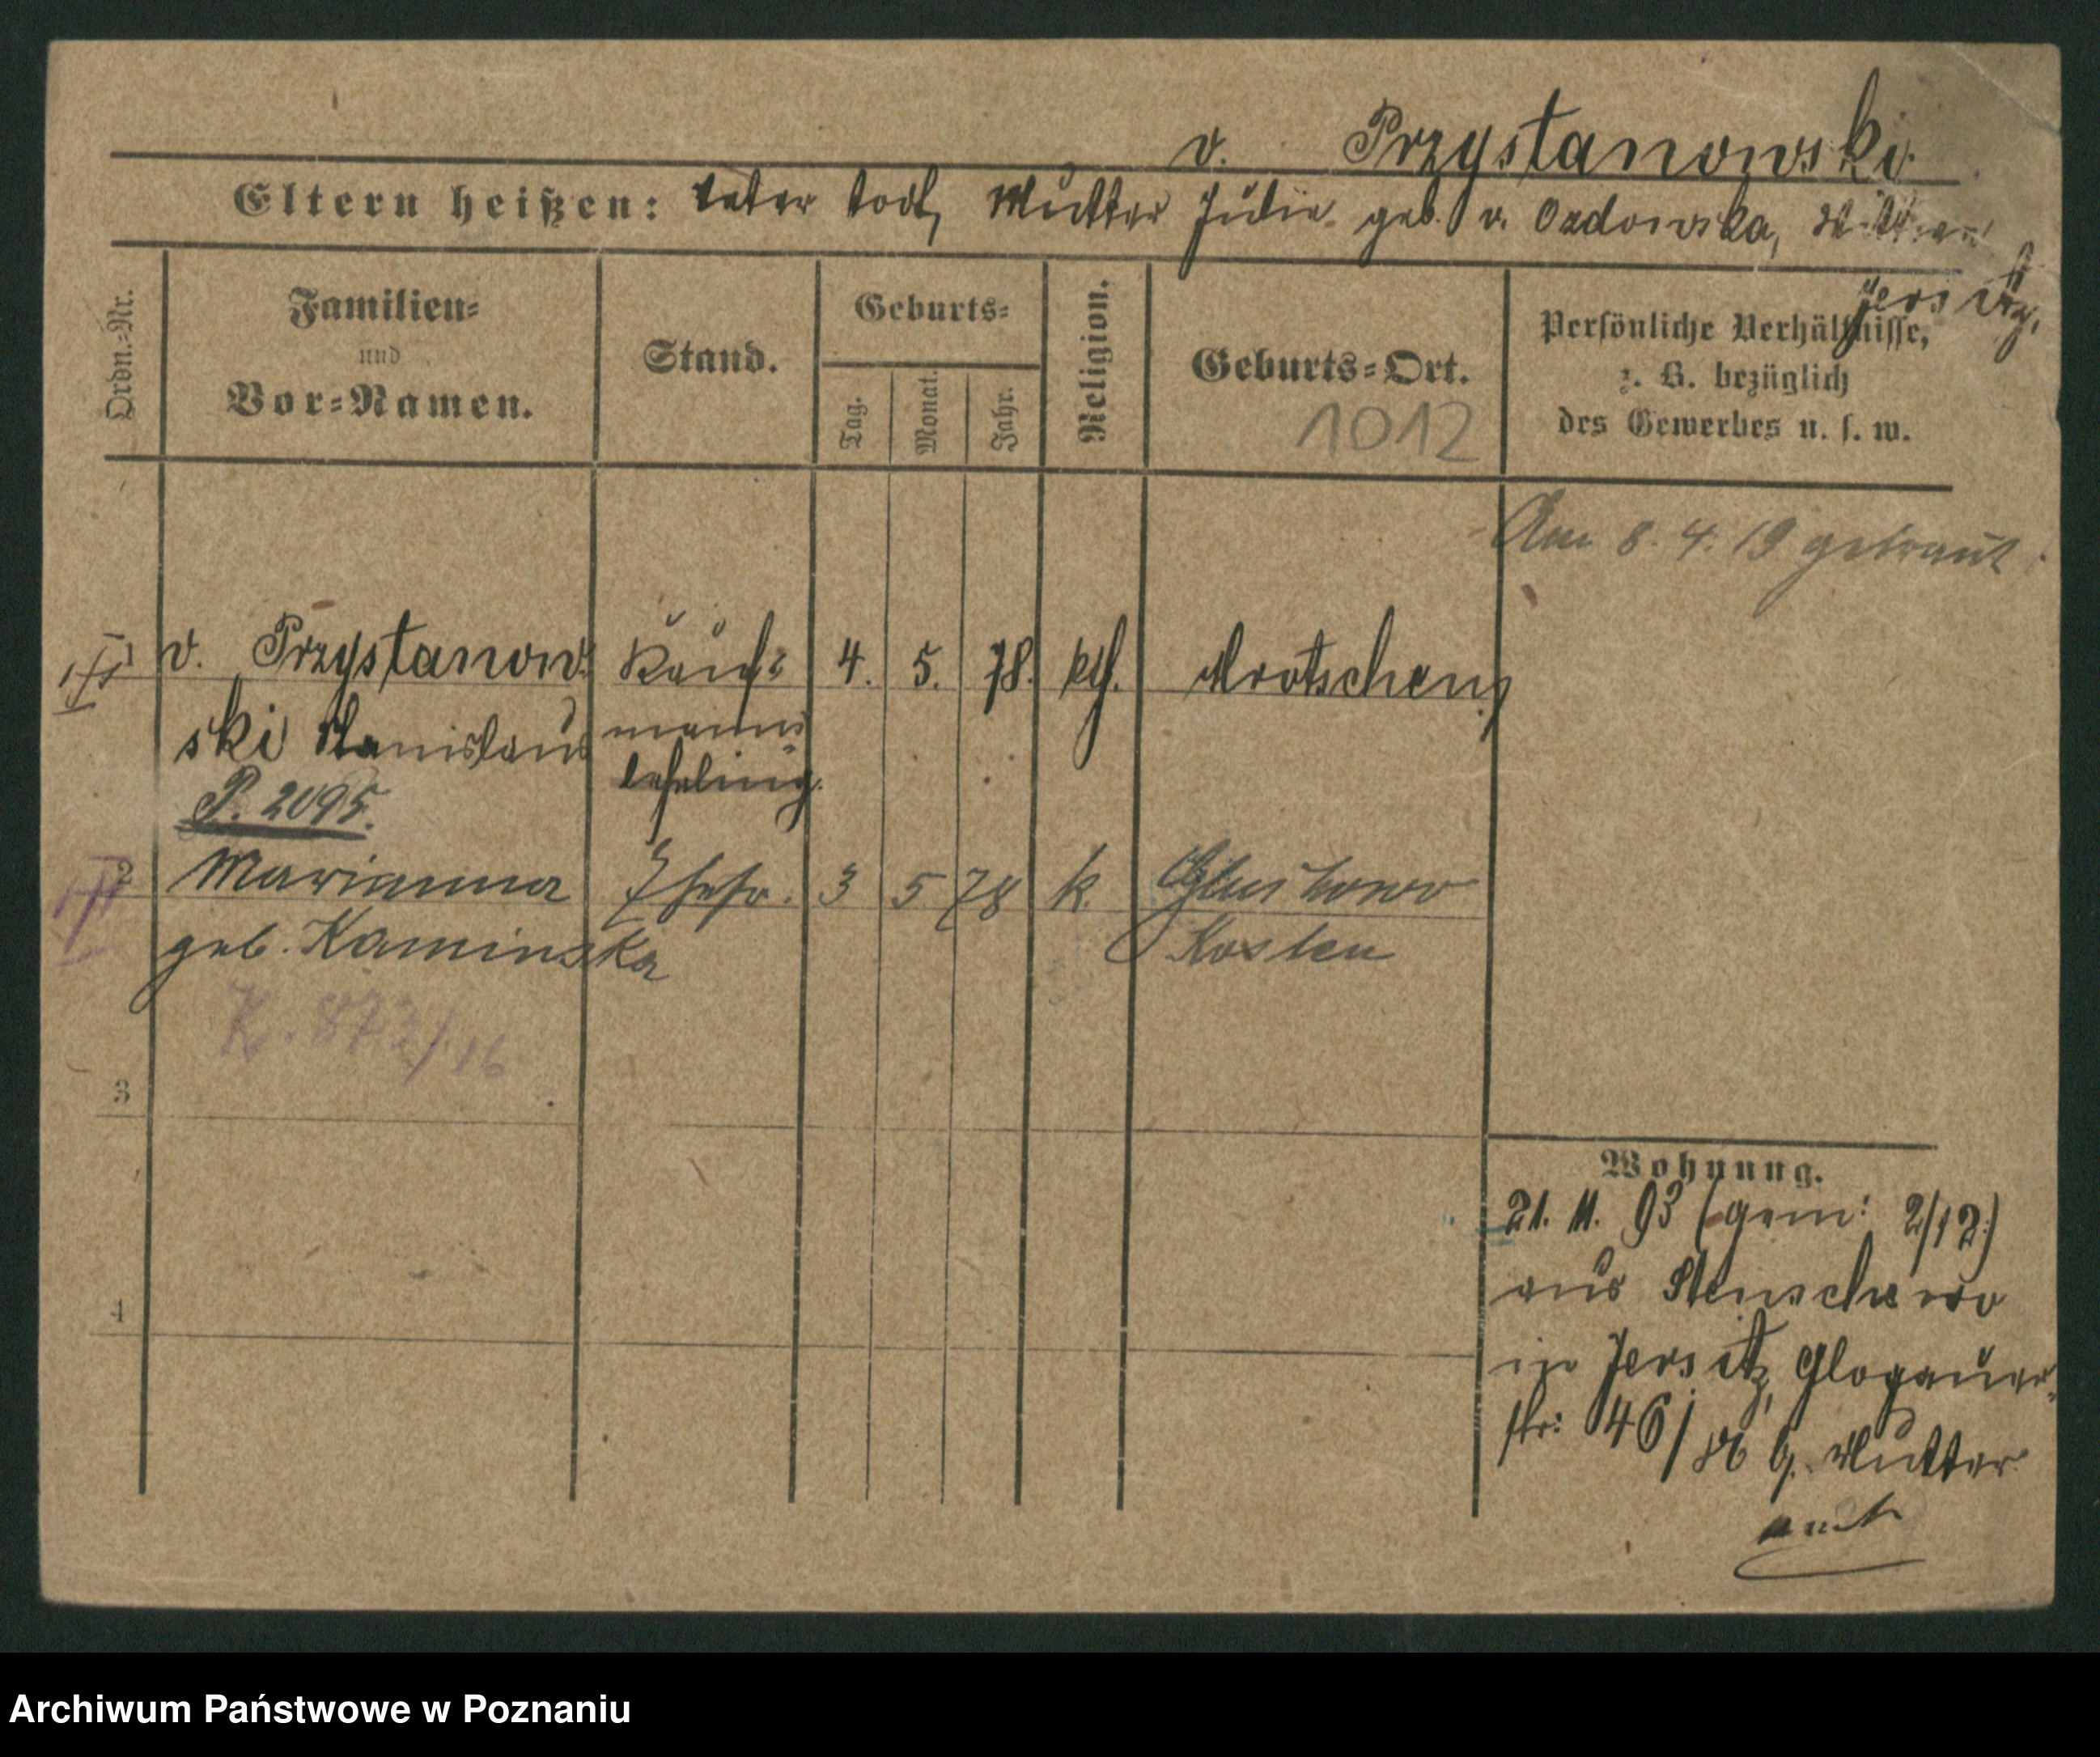 v. Przystanowski.
Eltern heißen: Vater todt, Mutter Julie geb. v. Ozdowska,
Jersitz,
Ordn.-Nr.
Familien-
und
Vor-Namen.
Stand.
Geburts-
Tag.
Monat.
Jahr.
Religion.
Geburts-Ort.
1012
Persönliche Verhältnisse,
z. B. bezüglich
des Gewerbes u. s. w.
Am 8. 4. 19 getraut
1 v. Przystanow- Kauf- 4. 5. 78. kth. Mrotschen
ski Stanislaus manns
lehrling.
P. 2095.
2 Marianna Ehefr. 3 5 78 k.
geb. Kaminska Kosten
K. 873/16
3
4
Wohnung.
21. 11. 93 (gem: 2/12.)
aus Stenschewo
in Jersitz, Glogauer-
str: 46/ b. Mutter